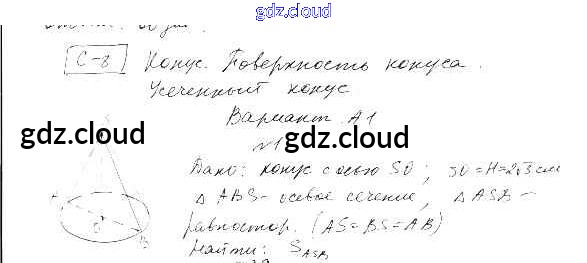 gdz.cloud
С-8 Конус. Поверхность конуса.
Усеченный конус
Вариант А1
gdz.cloud gdz.cloud
№1
Дано: конус с осью SO; SO=H=2√3 см
△ABS – осевое сечение, △ASB –
равностор. (AS=BS=AB)
Найти: S_ASB
A
O
B